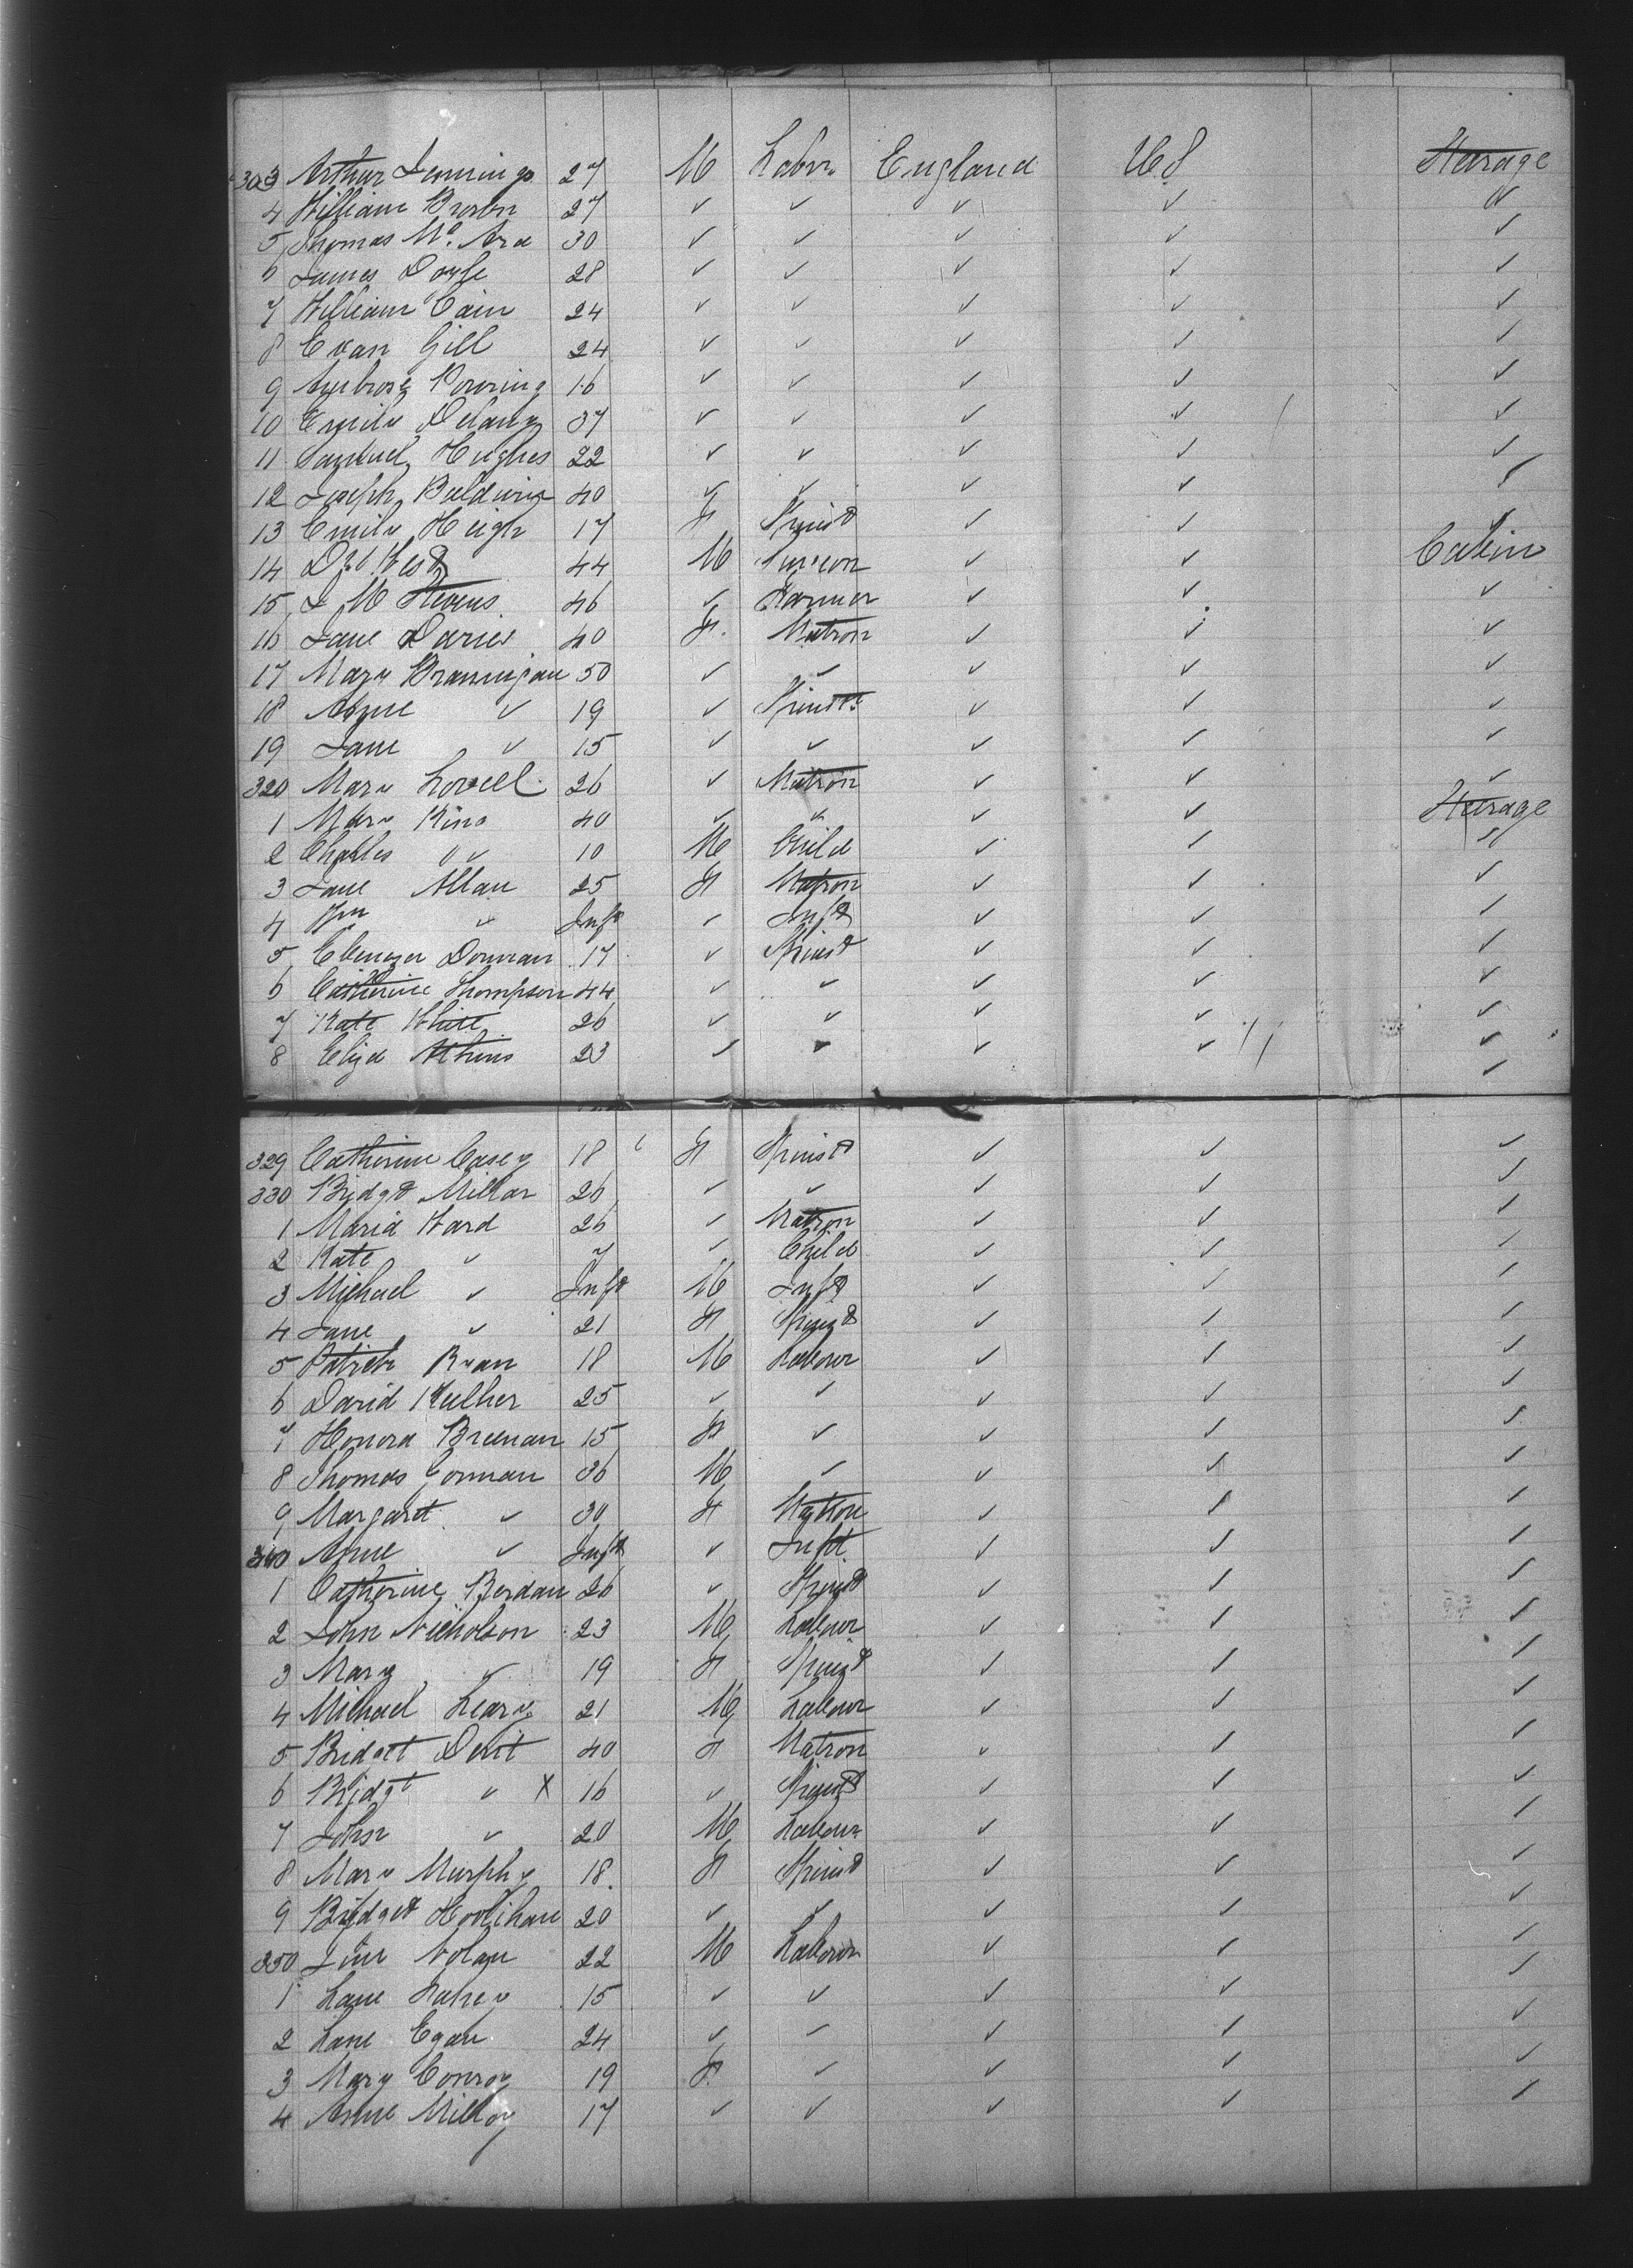 303 Arthur Jennings 27 M Labr England US Steerage
4 William Broster 27 ✓ ✓ ✓ ✓ ✓
5 Thomas Mc Ara 30 ✓ ✓ ✓ ✓ ✓
6 James Doyle 28 ✓ ✓ ✓ ✓ ✓
7 William Cain 24 ✓ ✓ ✓ ✓ ✓
8 Evan Gill 24 ✓ ✓ ✓ ✓ ✓
9 Ambrose 16 ✓ ✓ ✓ ✓ ✓
10 Emily Delany 37 ✓ ✓ ✓ ✓ ✓
11 Samuel Hughes 22 ✓ ✓ ✓ ✓ ✓
12 Joseph Baldwin 40 ✓ ✓ ✓ ✓ ✓
13 Emily Heigh 17 F Spinst ✓ ✓ ✓
14 44 M Surgeon ✓ ✓ Cabin
15 J M Stevens 46 ✓ Farmer ✓ ✓ ✓
16 Jane Davies 40 F. Matron ✓ ✓ ✓
17 Mary Brannigan 50 ✓ ✓ ✓ ✓ ✓
18 Anne ✓ 19 ✓ Spinstr ✓ ✓ ✓
19 Jane ✓ 15 ✓ ✓ ✓ ✓ ✓
320 Mary Lovell 26 ✓ Matron ✓ ✓ ✓
1 Mary King 40 ✓ ✓ ✓ ✓ Steerage
2 Charles ✓ 10 M Child ✓ ✓ ✓
3 Jane Allan 25 F Matron ✓ ✓ ✓
4 Wm ✓ Inft ✓ Inft ✓ ✓ ✓
5 Ebenezer Dounan 17 ✓ Spinst ✓ ✓ ✓
6 Catherine Thompson 44 ✓ ✓ ✓ ✓ ✓
7 Kate White 26 ✓ ✓ ✓ ✓ ✓
8 Eliza Athins 23 ✓ ✓ ✓ ✓ ✓
✓
329 Catherine Casey 18 F Spinst ✓ ✓ ✓
330 Bridgt Millar 26 ✓ ✓ ✓ ✓ ✓
1 Maria Ward 26 ✓ Matron ✓ ✓ ✓
2 Kate ✓ 7 ✓ Child ✓ ✓ ✓
3 Michael ✓ Inft M Inft ✓ ✓ ✓
4 Jane ✓ 21 F Spinst ✓ ✓ ✓
5 Patrick Ryan 18 M Labour ✓ ✓ ✓
6 David Kelher 25 ✓ ✓ ✓ ✓ ✓
7 Honora Breenan 15 F ✓ ✓ ✓ ✓
8 Thomas Gorman 36 M ✓ ✓ ✓ ✓
9 Margaret ✓ 30 F Matron ✓ ✓ ✓
340 Anne ✓ Inft ✓ Inft ✓ ✓ ✓
1 Catherine Berdan 26 ✓ Spinst ✓ ✓ ✓
2 John Nicholson 23 M Labour ✓ ✓ ✓
3 Mary ✓ 19 F Spinst ✓ ✓ ✓
4 Michael Leary 21 M Labour ✓ ✓ ✓
5 Bridget Devit 40 F Matron ✓ ✓ ✓
6 Bridgt ✓ X 16 ✓ Spinst ✓ ✓ ✓
7 John ✓ 20 M Labour ✓ ✓ ✓
8 Mary Murphy 18 F Spinst ✓ ✓ ✓
9 Bridget Hoolihan 20 ✓ ✓ ✓ ✓ ✓
350 Jim Nolan 22 M Labour ✓ ✓ ✓
1 Lane Fahey 15 ✓ ✓ ✓ ✓ ✓
2 Lane Egan 24 ✓ ✓ ✓ ✓ ✓
3 Mary Conroy 19 F ✓ ✓ ✓ ✓
4 Anne Milloy 17 ✓ ✓ ✓ ✓ ✓